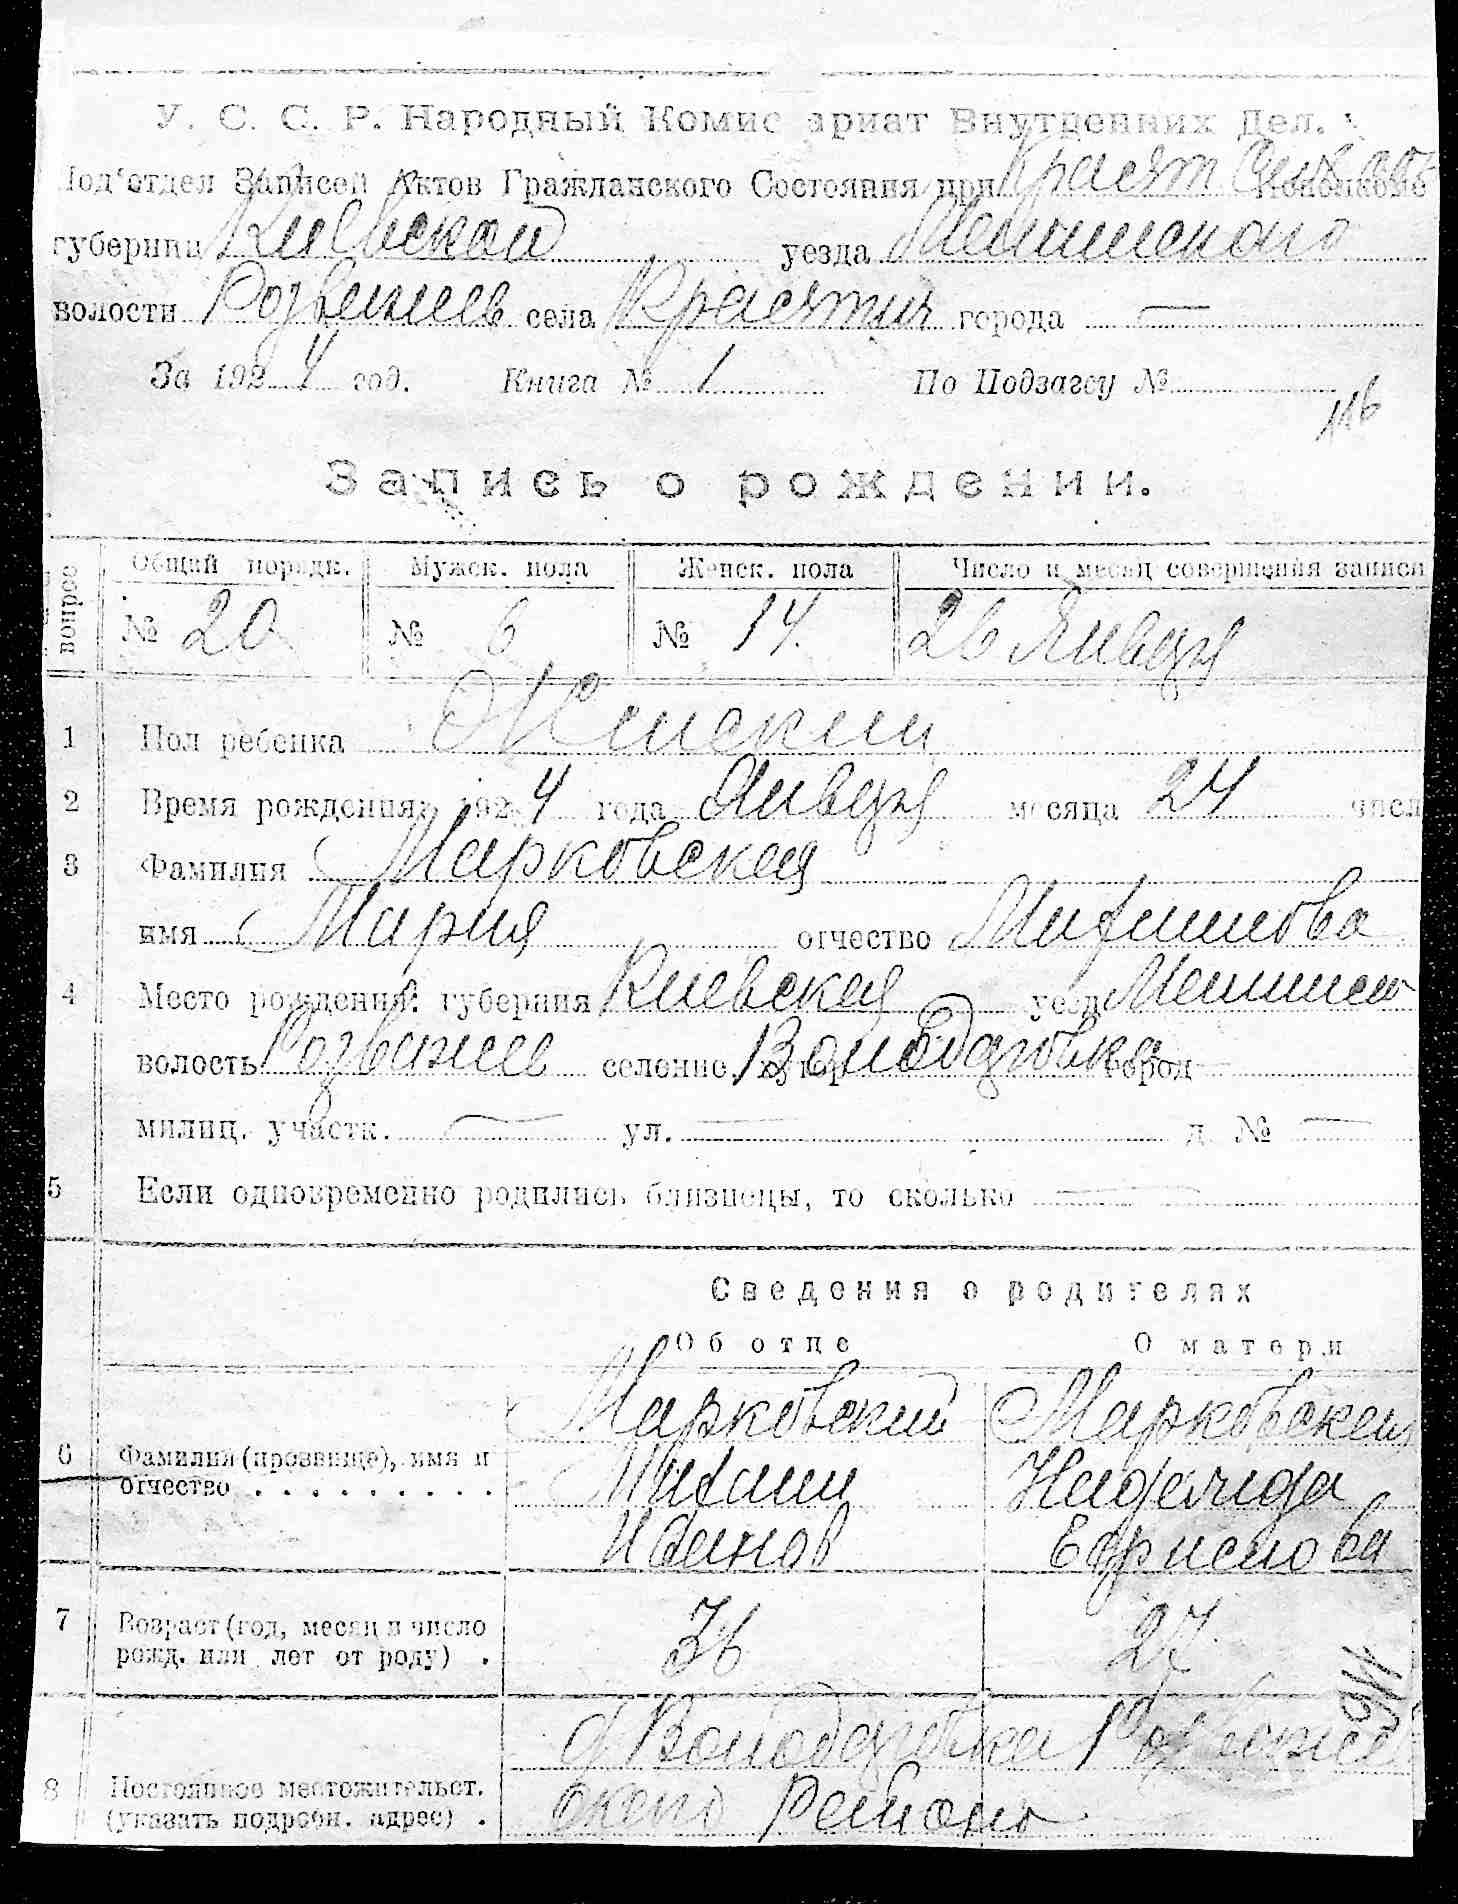 У. С. С. Р. Народный Комис ариат Внутренних Дел.
Под‘отдел Записей Актов Гражданского Состояния при Красят
губернии Киевской уезда
волости Розважев села Красятич города —
За 1924 год. Книга № 1 По Подзагсу №
116
Запись о рождении.
вопрос Общий порядк. Мужск. пола Женск. пола Число и месяц совершения записи
№ 20 № 6 № 14. 26 Январ
1 Пол ребенка Женский
2 Время рождения: 1924 года Январ месяца 24 числ
3 Фамилия Марковская
имя Мария отчество Михаилова
4 Место рождения: губерния Киевская уезд
волость Розважев селение, хутор город
милиц. участк. — ул. — д № —
5 Если одновременно родились близнецы, то сколько —
Сведения о родителях
Об отце О матери
Марковский Марковская
6 Фамилия (прозвище), имя и Михаил Надежда
отчество . . . . . . . . . Иванов
7 Возраст (год, месяц и число 36 27
рожд. или лет от роду) .
8 Постоянное местожительст.
(указать подробн. адрес) .
116